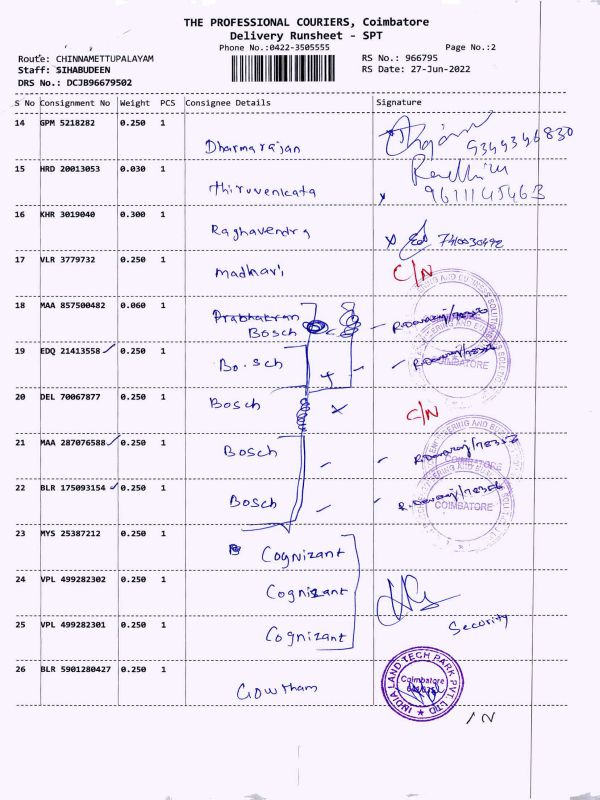 THE PROFESSIONAL COURIERS, Coimbatore
Delivery Runsheet - SPT
Phone No.:0422-3505555 Page No.:2
Route: CHINNAMETTUPALAYAM RS No.: 966795
Staff: SIHABUDEEN RS Date: 27-Jun-2022
DRS No.: DCJB96679502
S No Consignment No Weight PCS Consignee Details Signature
14 GPM 5218282 0.250 1 Dharmarajan 9344346830
15 HRD 20013053 0.030 1 Thiruvenkata 9611145463
16 KHR 3019040 0.300 1 Raghavendra
17 VLR 3779732 0.250 1 Madhavi C/N
18 MAA 857500482 0.060 1 Prabhakran
Bosch
19 EDQ 21413558 0.250 1 Bosch
COIMBATORE
20 DEL 70067877 0.250 1 Bosch C/N
21 MAA 287076588 0.250 1 Bosch
COIMBATORE
22 BLR 175093154 0.250 1 Bosch
COIMBATORE
23 MYS 25387212 0.250 1 Cognizant
24 VPL 499282302 0.250 1 Cognizant
25 VPL 499282301 0.250 1 Cognizant Security
26 BLR 5901280427 0.250 1 Gowtham
INDIA LAND TECH PARK PVT. LTD
Coimbatore